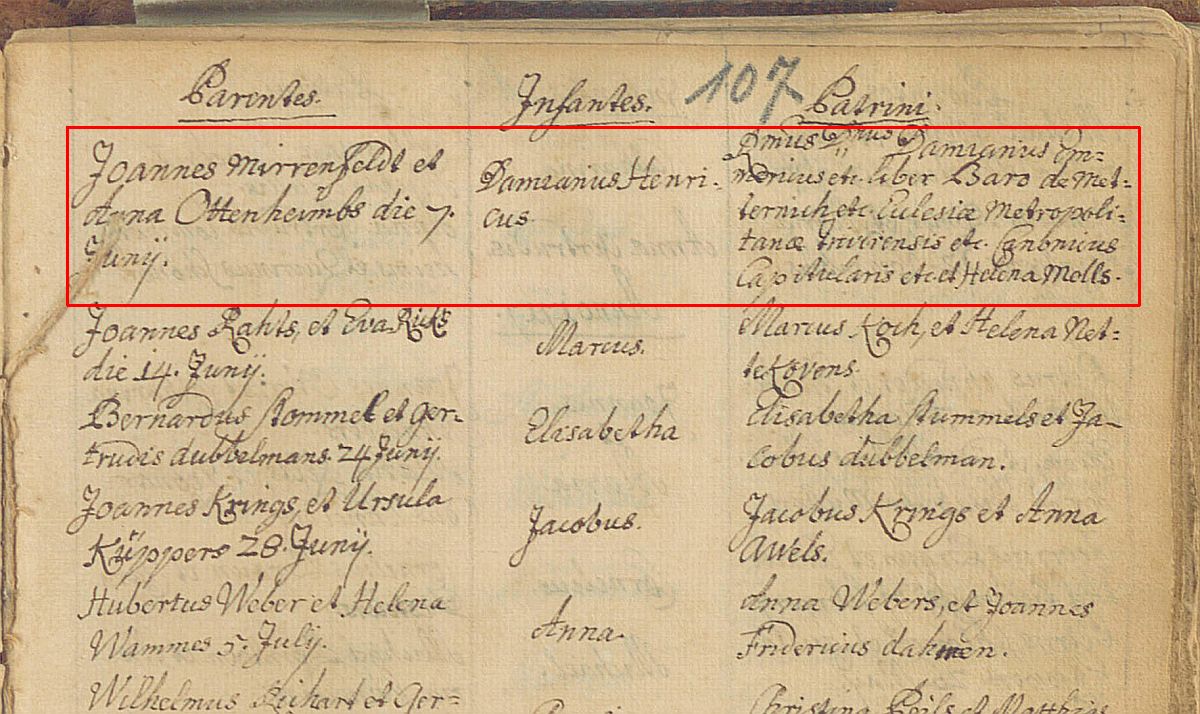 107
Parentes. Infantes. Patrini.
Joannes Mirrenfeldt et
Anna Ottenheimbs die 7.
Junij.
Damianus Henri-
cus.
Rmus Dnus D Damianus
mericus etc. liber Baro de Met-
ternich etc. Eulesiæ Metropoli-
tanæ trivirensis etc. Canonicus
Capitularis etc et Helena Molls.
Joannes Rahts, et Eva Ricks
die 14. Junij.
Marcus.
Marcus Koch, et Helena Net-
tekovens.
Bernardus stommel et Ger-
trudis dubbelmans. 24 Junij.
Elisabetha
Elisabetha stummels et Ja-
cobus dubbelman.
Joannes Krings, et Ursula
Küppers 28. Junij.
Jacobus.
Jacobus Krings et Anna
Awels.
Hubertus Weber et Helena
Wammes 5. Julij.
Anna.
Anna Webers, et Joannes
Fridericus dahmen.
Wilhelmus Richart et Ger-
Christina Peils et Matthias